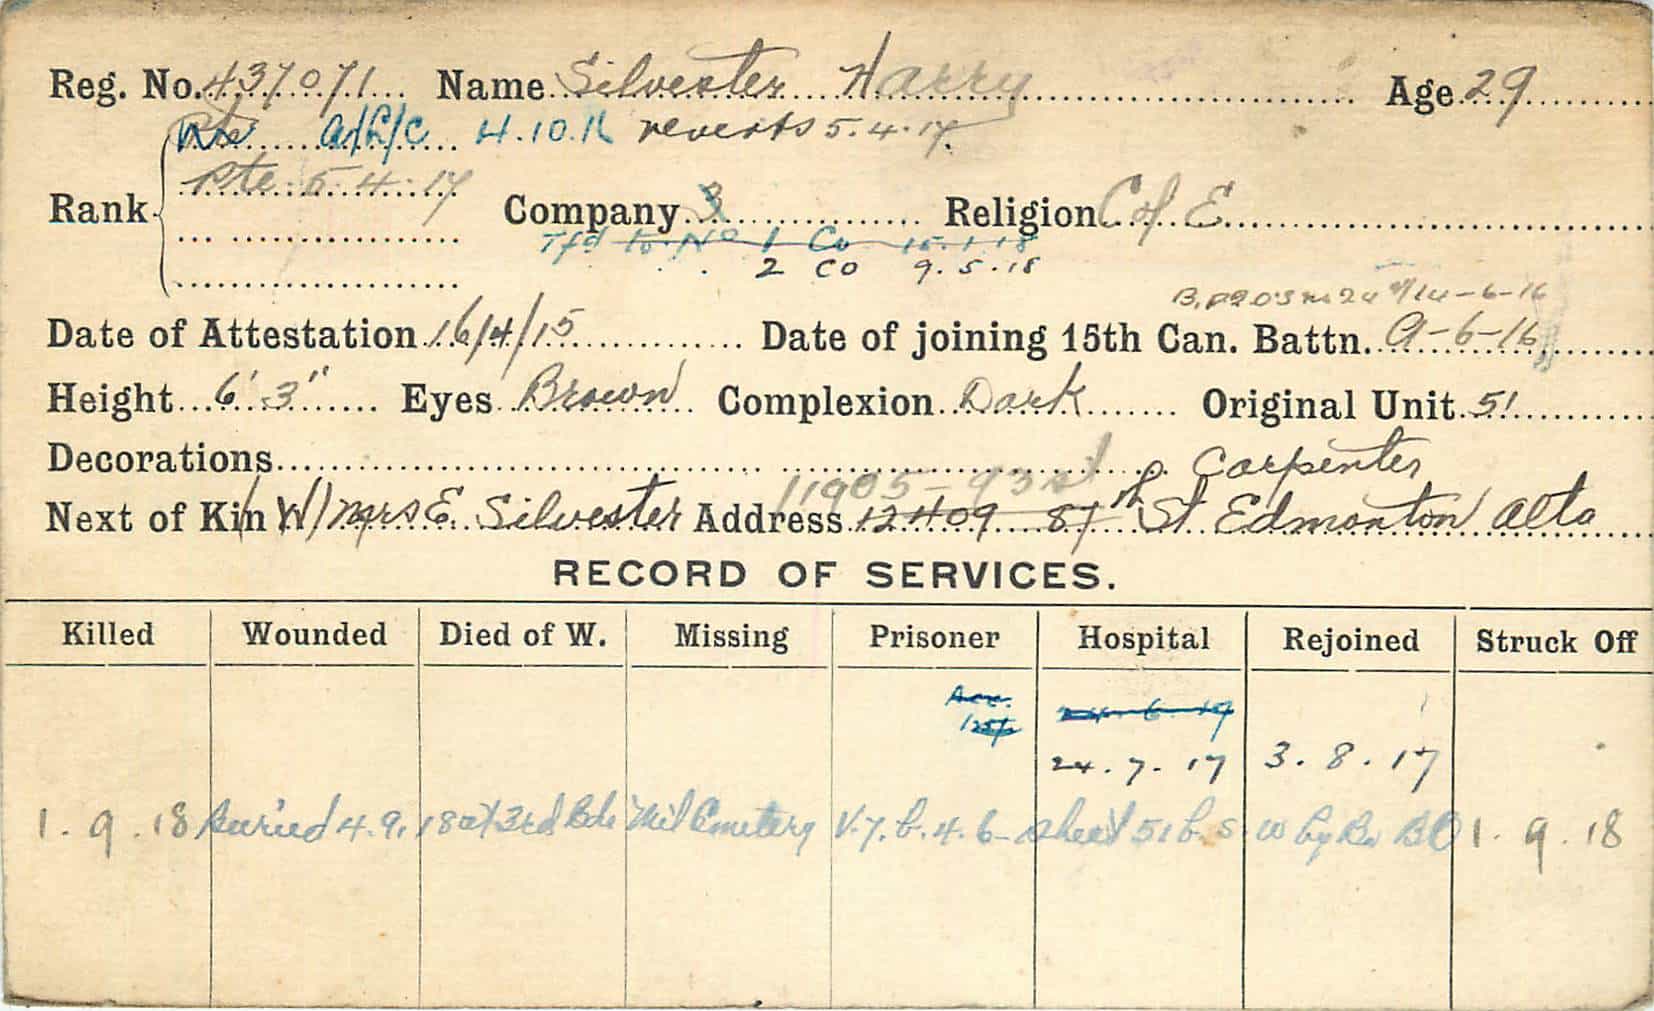 Reg. No. 437071 Name Silvester Harry Age 29
Pte a/L/C 4.10.16 reverts 5.4.17.
Pte 5.4.17
Rank Company 3 Religion C of E
Tfd to No 1 Co 15.1.18
2 Co 9.5.18
14-6-16
Date of Attestation 16/4/15 Date of joining 15th Can. Battn. 9-6-16
Height 6' 3" Eyes Brown Complexion Dark Original Unit 51
Decorations Carpenter
11905-93 st
Next of Kin W/ Mrs E. Silvester Address 12409 87th St Edmonton Alta
RECORD OF SERVICES.
Killed Wounded Died of W. Missing Prisoner Hospital Rejoined Struck Off
24.6.17
24.7.17 3.8.17
1.9.18 Buried 4.9.18 at 3rd Bde Mil Cemetery V.7.b.4.6- sheet 51b. S.W by BO 1.9.18